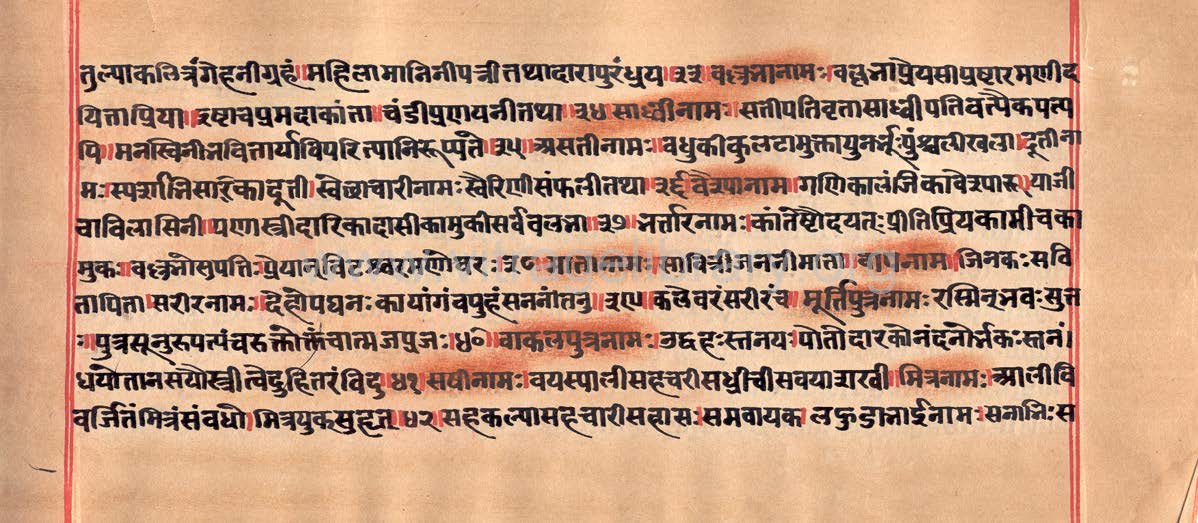 तुल्पाकलित्रंगेहनीगृहं॥महिलामानिनीपत्नीतथादारापुरंध्रय॥३३ वल्लभानामः॥वल्लभाप्रेयसीप्रेष्टारमणीद
यिताप्रिया॥इष्टाचप्रमदाकांता॥चंडीप्रणयनीतथा॥३४ साध्वीनामः॥सतीपतिवृतासाध्वीपतिवत्येकपत्प
पि॥मनस्विनीभवित्तार्याविपरित्पानिरूप्पंते॥३५ असतीनामः॥बधुकीकुलटामुक्तापुनर्भूःपुंश्चलीखला॥दूतीना
मः॥स्पर्शाभिसारिकादूती॥स्वेछाचारीनामः॥स्वैरिणीसंफलीतथा॥३६ वैश्यानाम॥गणिकालंजिकावेश्यारूपाजी
वाविलासिनी॥पण्यस्त्रीदारिकादासीकामुकीसर्ववल्लभा॥३७ भर्त्तारनामः॥कांतेष्टौदयतः॥प्रीतिप्रियकामीचका
मुकः॥वल्लभोसुपतिः॥प्रेयान्विटश्चरमणोवरः॥३८ मातानामः॥सावित्रीजननीमाता॥बापनाम॥जिनकःसवि
तापिता॥सरीरनामः॥देहोपघनःकायांगंचपुहंसननंतनु॥३९॥कलेवरंसरीरंच॥मूर्त्तिपुत्रनामः॥रस्मिन्भवःसुत
ः॥पुत्रसूनुरुपत्पंचरुक्तोक्तंचात्मजप्रजः॥४०॥बाकलपुत्रनामः॥उद्वहःस्तनयःपोतोदारकोनंदनोर्भकःस्तनं।
धयोतानसयौस्त्रीत्वेदुहितरंविदु॥४१॥सषीनामः॥वयस्पालीसहचरीसध्रीचीसवयाराखी॥मित्रनामः॥आलीवि
वर्जितंमित्रंसंवधौ॥मित्रयुकसुहृत्॥४२॥सहकल्पासहचारीसहासः॥समवायक॥लहुडाभाईनामः॥सनाभिःस